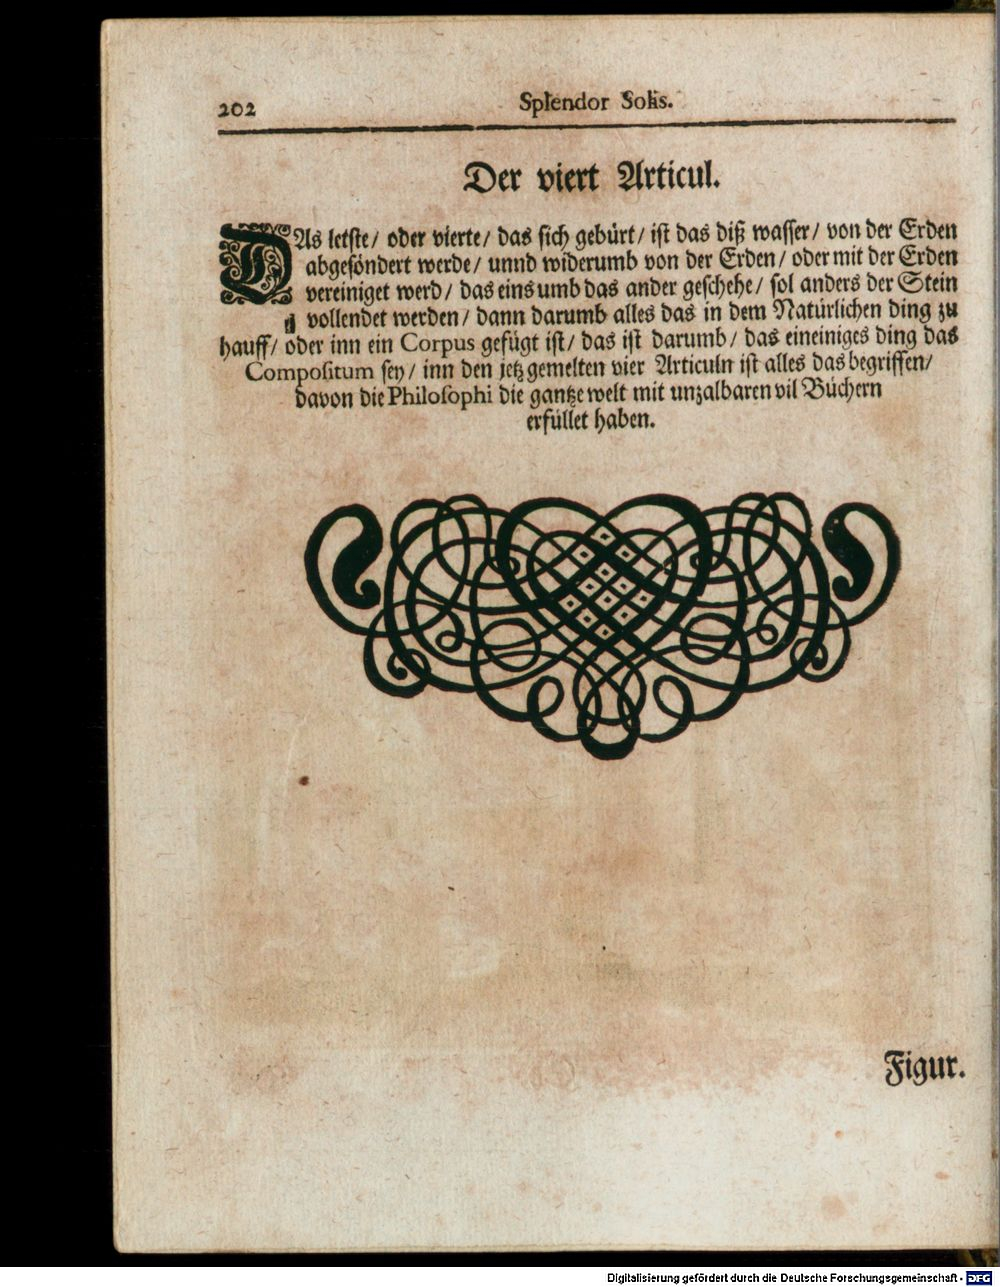 202
Splendor Solis.
Der viert Articul.
DAs letste/ oder vierte/ das sich gebürt/ ist das diß wasser/ von der Erden
abgesöndert werde/ unnd widerumb von der Erden/ oder mit der Erden
vereiniget werd/ das eins umb das ander geschehe/ sol anders der Stein
vollendet werden/ dann darumb alles das in dem Natürlichen ding zu
hauff/ oder inn ein Corpus gefügt ist/ das ist darumb/ das eineiniges ding das
Compositum sey/ inn den jetz gemelten vier Articuln ist alles das begriffen/
davon die Philosophi die gantze welt mit unzalbaren vil Büchern
erfüllet haben.
Figur.
Digitalisierung gefördert durch die Deutsche Forschungsgemeinschaft - DFG